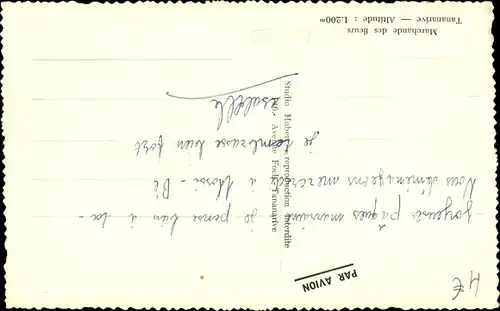 Tananarive — Altitude : 1.200ᵐ
Marchande des fleurs
PAR AVION
Joyeuses pâques marraine je pense bien à toi -
Nous déménageons mercredi à Nossi - Bé
je t'embrasse bien fort
Isabelle
Studio Hubert — reproduction interdite
Avenue Foch - Tananarive
4 €